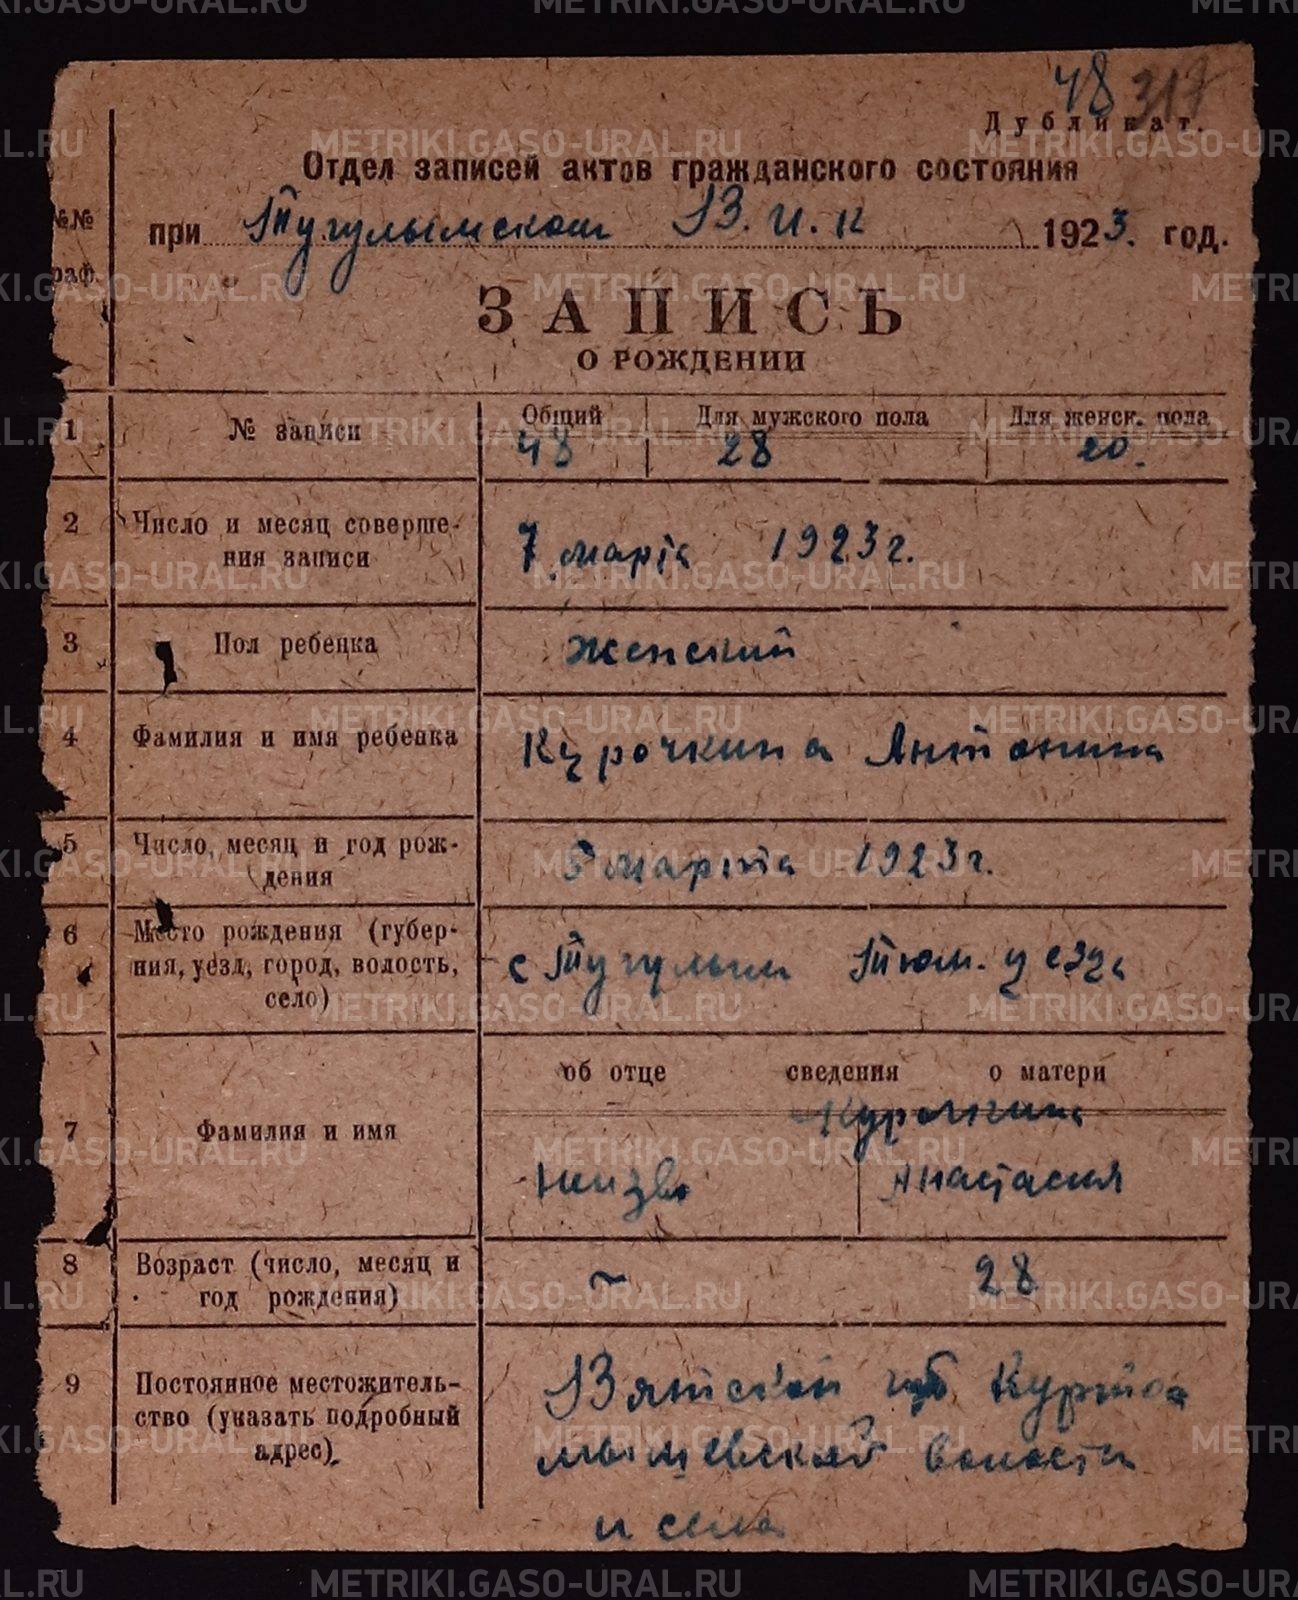 48 317
Дубликат.
Отдел записей актов гражданского состояния
№№ при Тугулымском В.И.К 1923. год.
раф.
ЗАПИСЬ
О РОЖДЕНИИ
1 № записи Общий Для мужского пола Для женск. пола
48 28 20.
2 Число и месяц соверше-
ния записи
7 марта 1923 г.
3 Пол ребенка Женский
4 Фамилия и имя ребенка Курочкина Антонина
5 Число, месяц и год рож-
дения
5 марта 1923 г.
6 Место рождения (губер-
ния, уезд, город, волость,
село)
с Тугулым Тюм. уезда
об отце сведения о матери
7 Фамилия и имя
Неизве
Курочкина
Анастасия
8 Возраст (число, месяц и
год рождения)
– 28
9 Постоянное местожитель-
ство (указать подробный
адрес).
Вятской губ
волости
и села
METRIKI.GASO-URAL.RU